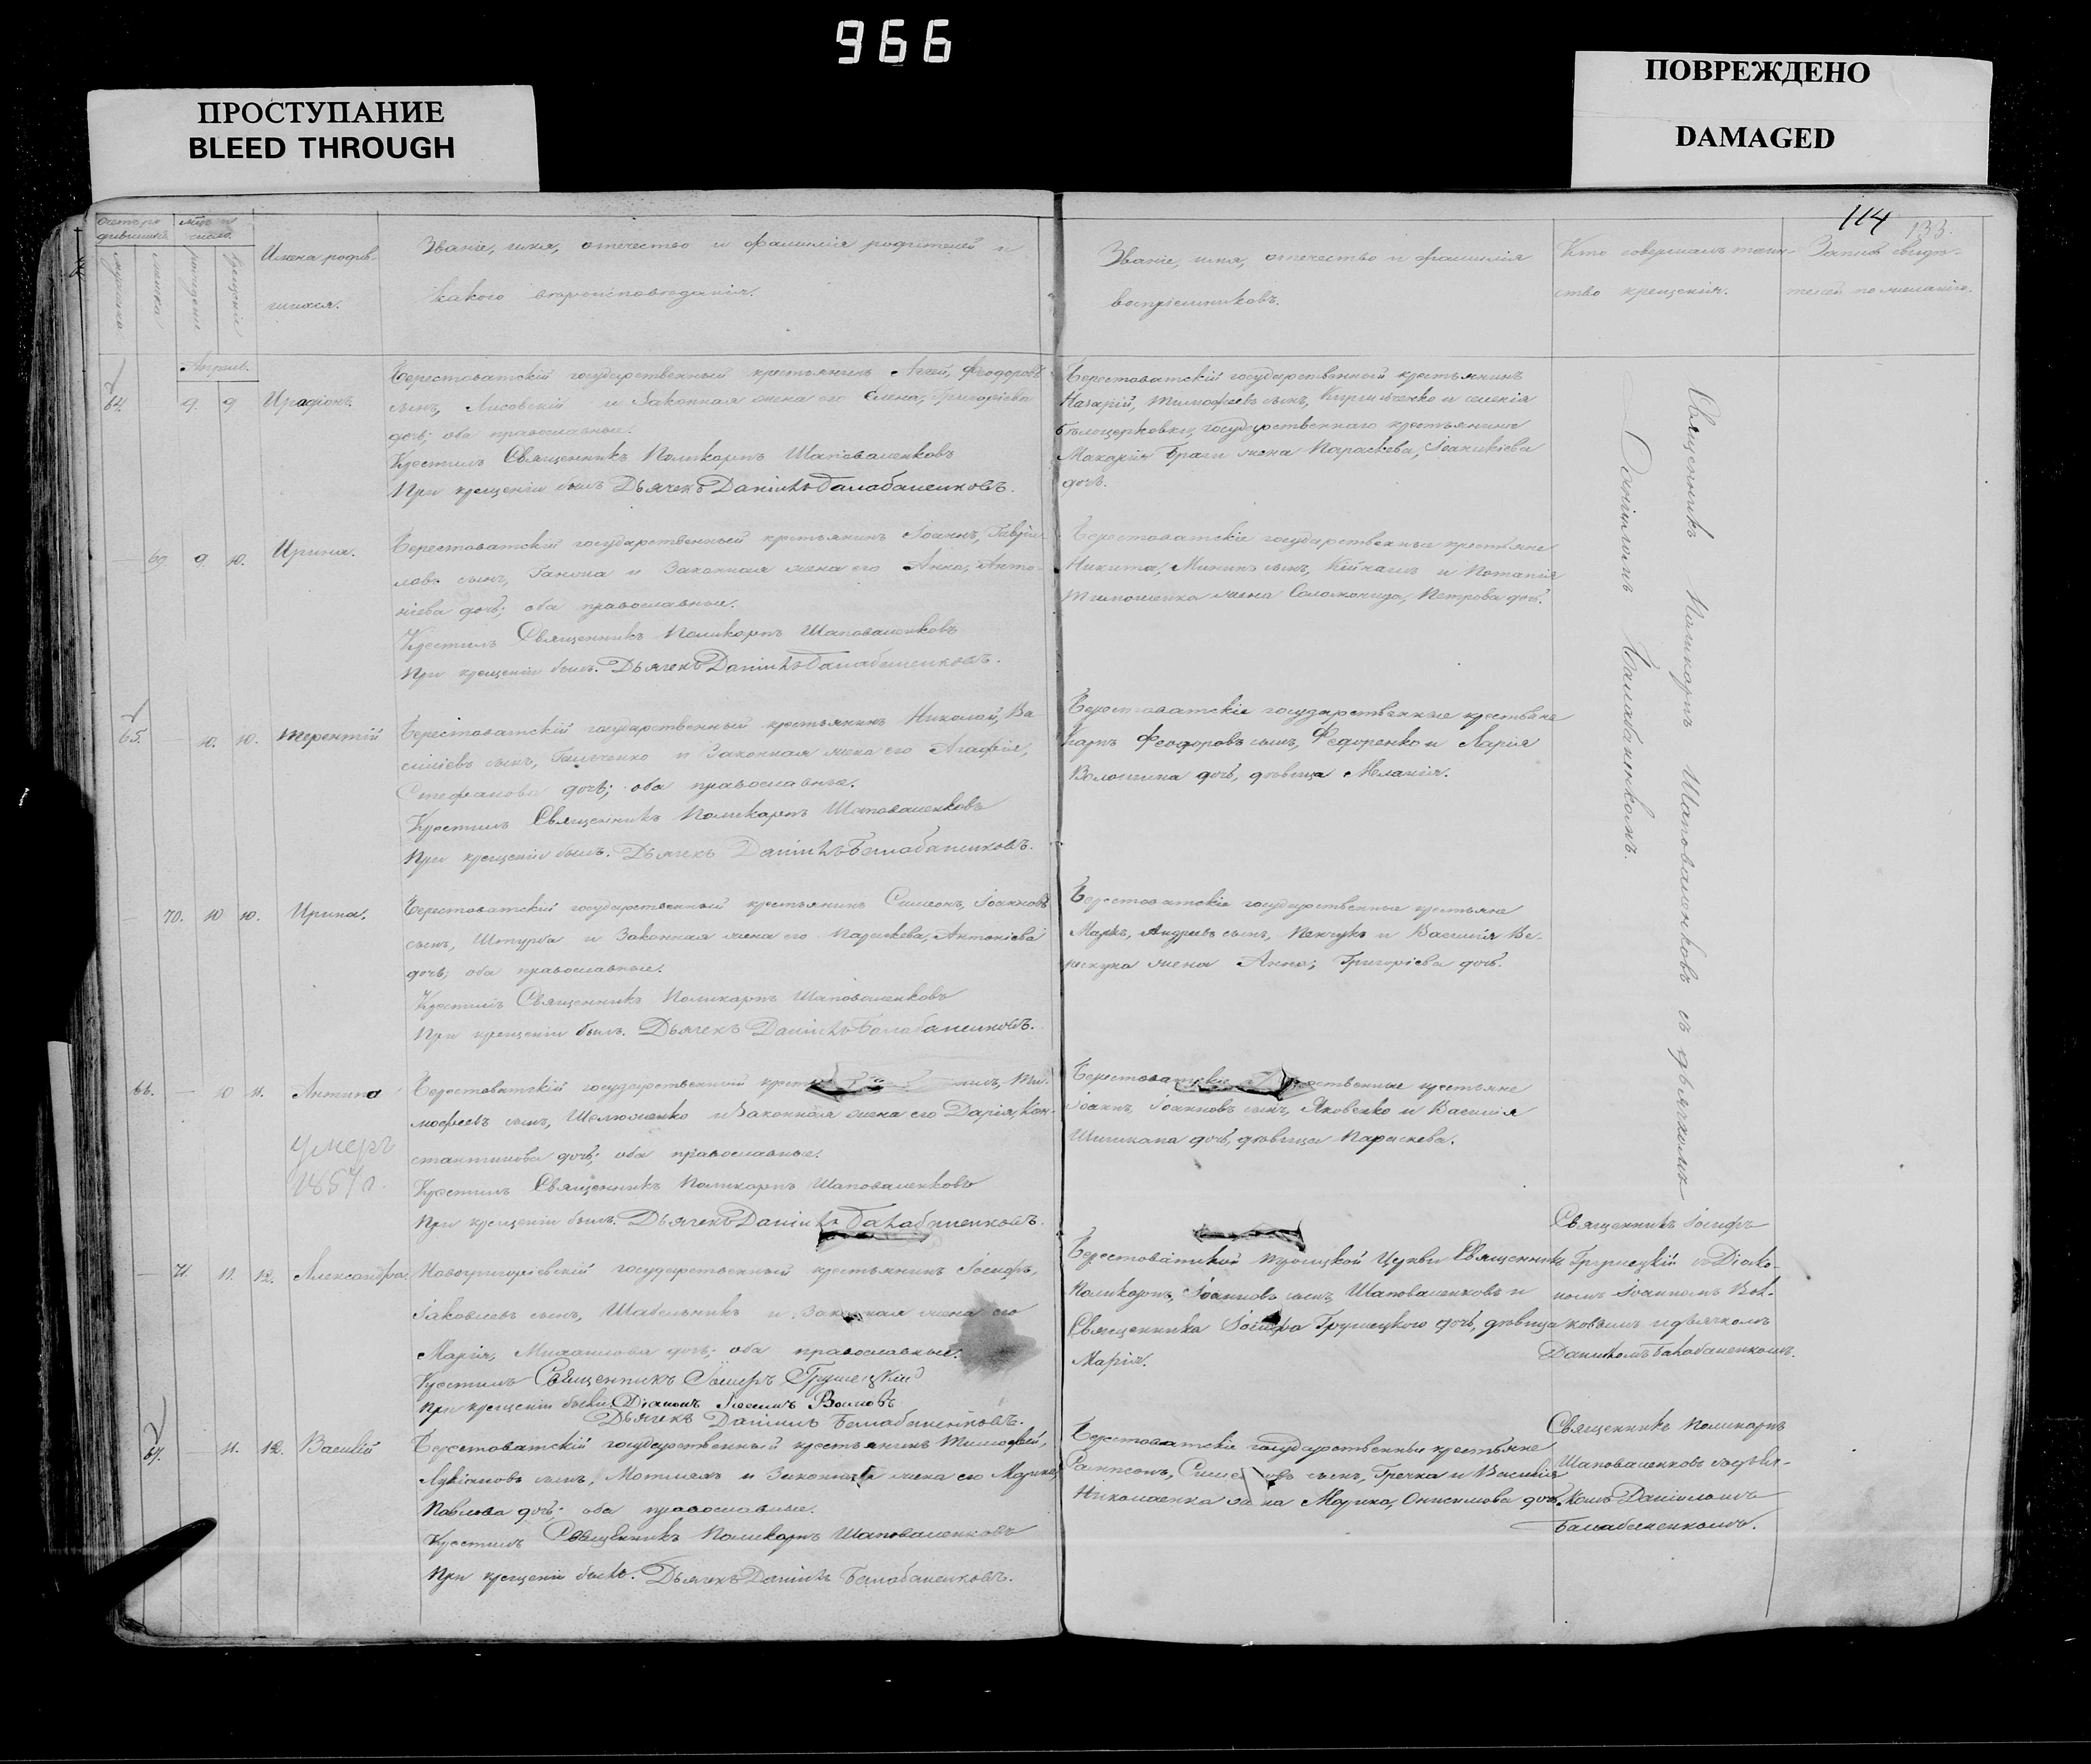 966
ПРОСТУПАНИЕ
BLEED THROUGH
ПОВРЕЖДЕНО
DAMAGED
114
133.
Имена родив-
шихся.
Званіе, имя, отечество и фамилія родителей и
какого вѣроисповѣданія.
Званіе, имя, отечество и фамилія
воспріемниковъ.
Кто совершалъ таин-
ство крещенія.
Запись свидѣ-
телей по желанію.
64. 9. 9 Иродіонъ.
Берестоватскій государственный крестьянинъ Аггей, Феодоровъ
сынъ, Лисовскій и Законная жена его Елена, Григоріева
дочь; оба православные.
Крестилъ Священникъ Поликарпъ Шаповаленковъ
При крещеніи былъ Дьячекъ Даніилъ Балабаненковъ.
Берестоватскій государственный крестьянинъ
Назарій, Тимофеевъ сынъ, и селенія
Бѣлоцерковки, государственнаго крестьянина
Макарія Браги жена Параскева, Іоанникіева
дочь.
Священникъ Поликарпъ Шаповаленковъ съ дьячкомъ
Даніиломъ Балабаненковымъ.
69 9 10. Ирина.
Берестоватскій государственный крестьянинъ Іоаннъ, Гавріи-
ловъ сынъ, Ганока и Законная жена его Анна, Анто-
ніева дочь; оба православные.
Крестилъ Священникъ Поликарпъ Шаповаленковъ
При крещеніи былъ. Дьячекъ Даніилъ Балабаненковъ.
Берестоватскіе государственные крестьяне
Никита, Мининъ сынъ, и Потапія
Тимошенка жена Соломонида, Петрова дочь.
65. 10. 10. Терентій
Берестоватскій государственный крестьянинъ Николай, Ва-
силіевъ сынъ, и Законная жена его Агафія,
Стефанова дочь; оба православные.
Крестилъ Священникъ Поликарпъ Шаповаленковъ
При крещеніи былъ. Дьячекъ Даніилъ Балабаненковъ.
Берестоватскіе государственные крестьяне
Карпъ Феодоровъ сынъ, Федоренко и
Волошина дочь, дѣвица Меланія.
70. 10 10. Ирина.
Берестоватскій государственный крестьянинъ Симеонъ, Іоанновъ
сынъ, Штурба и Законная жена его Параскева, Антоніева
дочь; оба православные.
Крестилъ Священникъ Поликарпъ Шаповаленковъ
При крещеніи былъ. Дьячекъ Даніилъ Балабаненковъ.
Берестоватскіе государственные крестьяне
Маркъ, Андреевъ сынъ, и Василія
жена Анна, Григоріева дочь.
66. — 10 11. Антипа
умеръ
1857 г.
Берестоватскій государственный Ти-
мофеевъ сынъ, Шелюженко и Законная жена его Дарія, Кон-
стантинова дочь; оба православные.
Крестилъ Священникъ Поликарпъ Шаповаленковъ
При крещеніи былъ. Дьячекъ Даніилъ Балабаненковъ.
Берестоватскіе крестьяне
Іоаннъ, Іоанновъ сынъ, Яковенко и Василія
Шишкана дочь, дѣвица Параскева.
— 71. 11. 12. Александра.
Новогригоріевскій государственный крестьянинъ Іосифъ,
Іаковлевъ сынъ, Шабельникъ и Законная жена его
Марія, Михаилова дочь; оба православные.
Крестилъ Священникъ Іосифъ Грушецкій
При крещеніи были Діаконъ Іоаннъ Волковъ
Дьячекъ Даніилъ Балабаненковъ.
Берестоватской Троицкой Церкви Священникъ
Поликарпъ, Іоанновъ сынъ, Шаповаленковъ и
Священника Іосифа Грушецкого дочь, дѣвица
Марія.
Священникъ Іосифъ
Грушецкій съ Діако-
номъ Іоанномъ Вол-
ковымъ и дьячкомъ
Даніиломъ Балабаненкомъ.
67. — 11. 12. Василій
Берестоватскій государственный крестьянинъ Тимофей,
Лукіановъ сынъ, и Законная жена его Марина,
Павлова дочь; оба православные.
Крестилъ Священникъ Поликарпъ Шаповаленковъ
При крещеніи былъ. Дьячекъ Даніилъ Балабаненковъ.
Берестоватскіе государственные крестьяне
Сампсонъ, сынъ, Гречка и Василія
Николаенка жена Марина, Онисимова дочь.
Священникъ Поликарпъ
Шаповаленковъ съ дьяч-
комъ Даніиломъ
Балабаненкомъ.